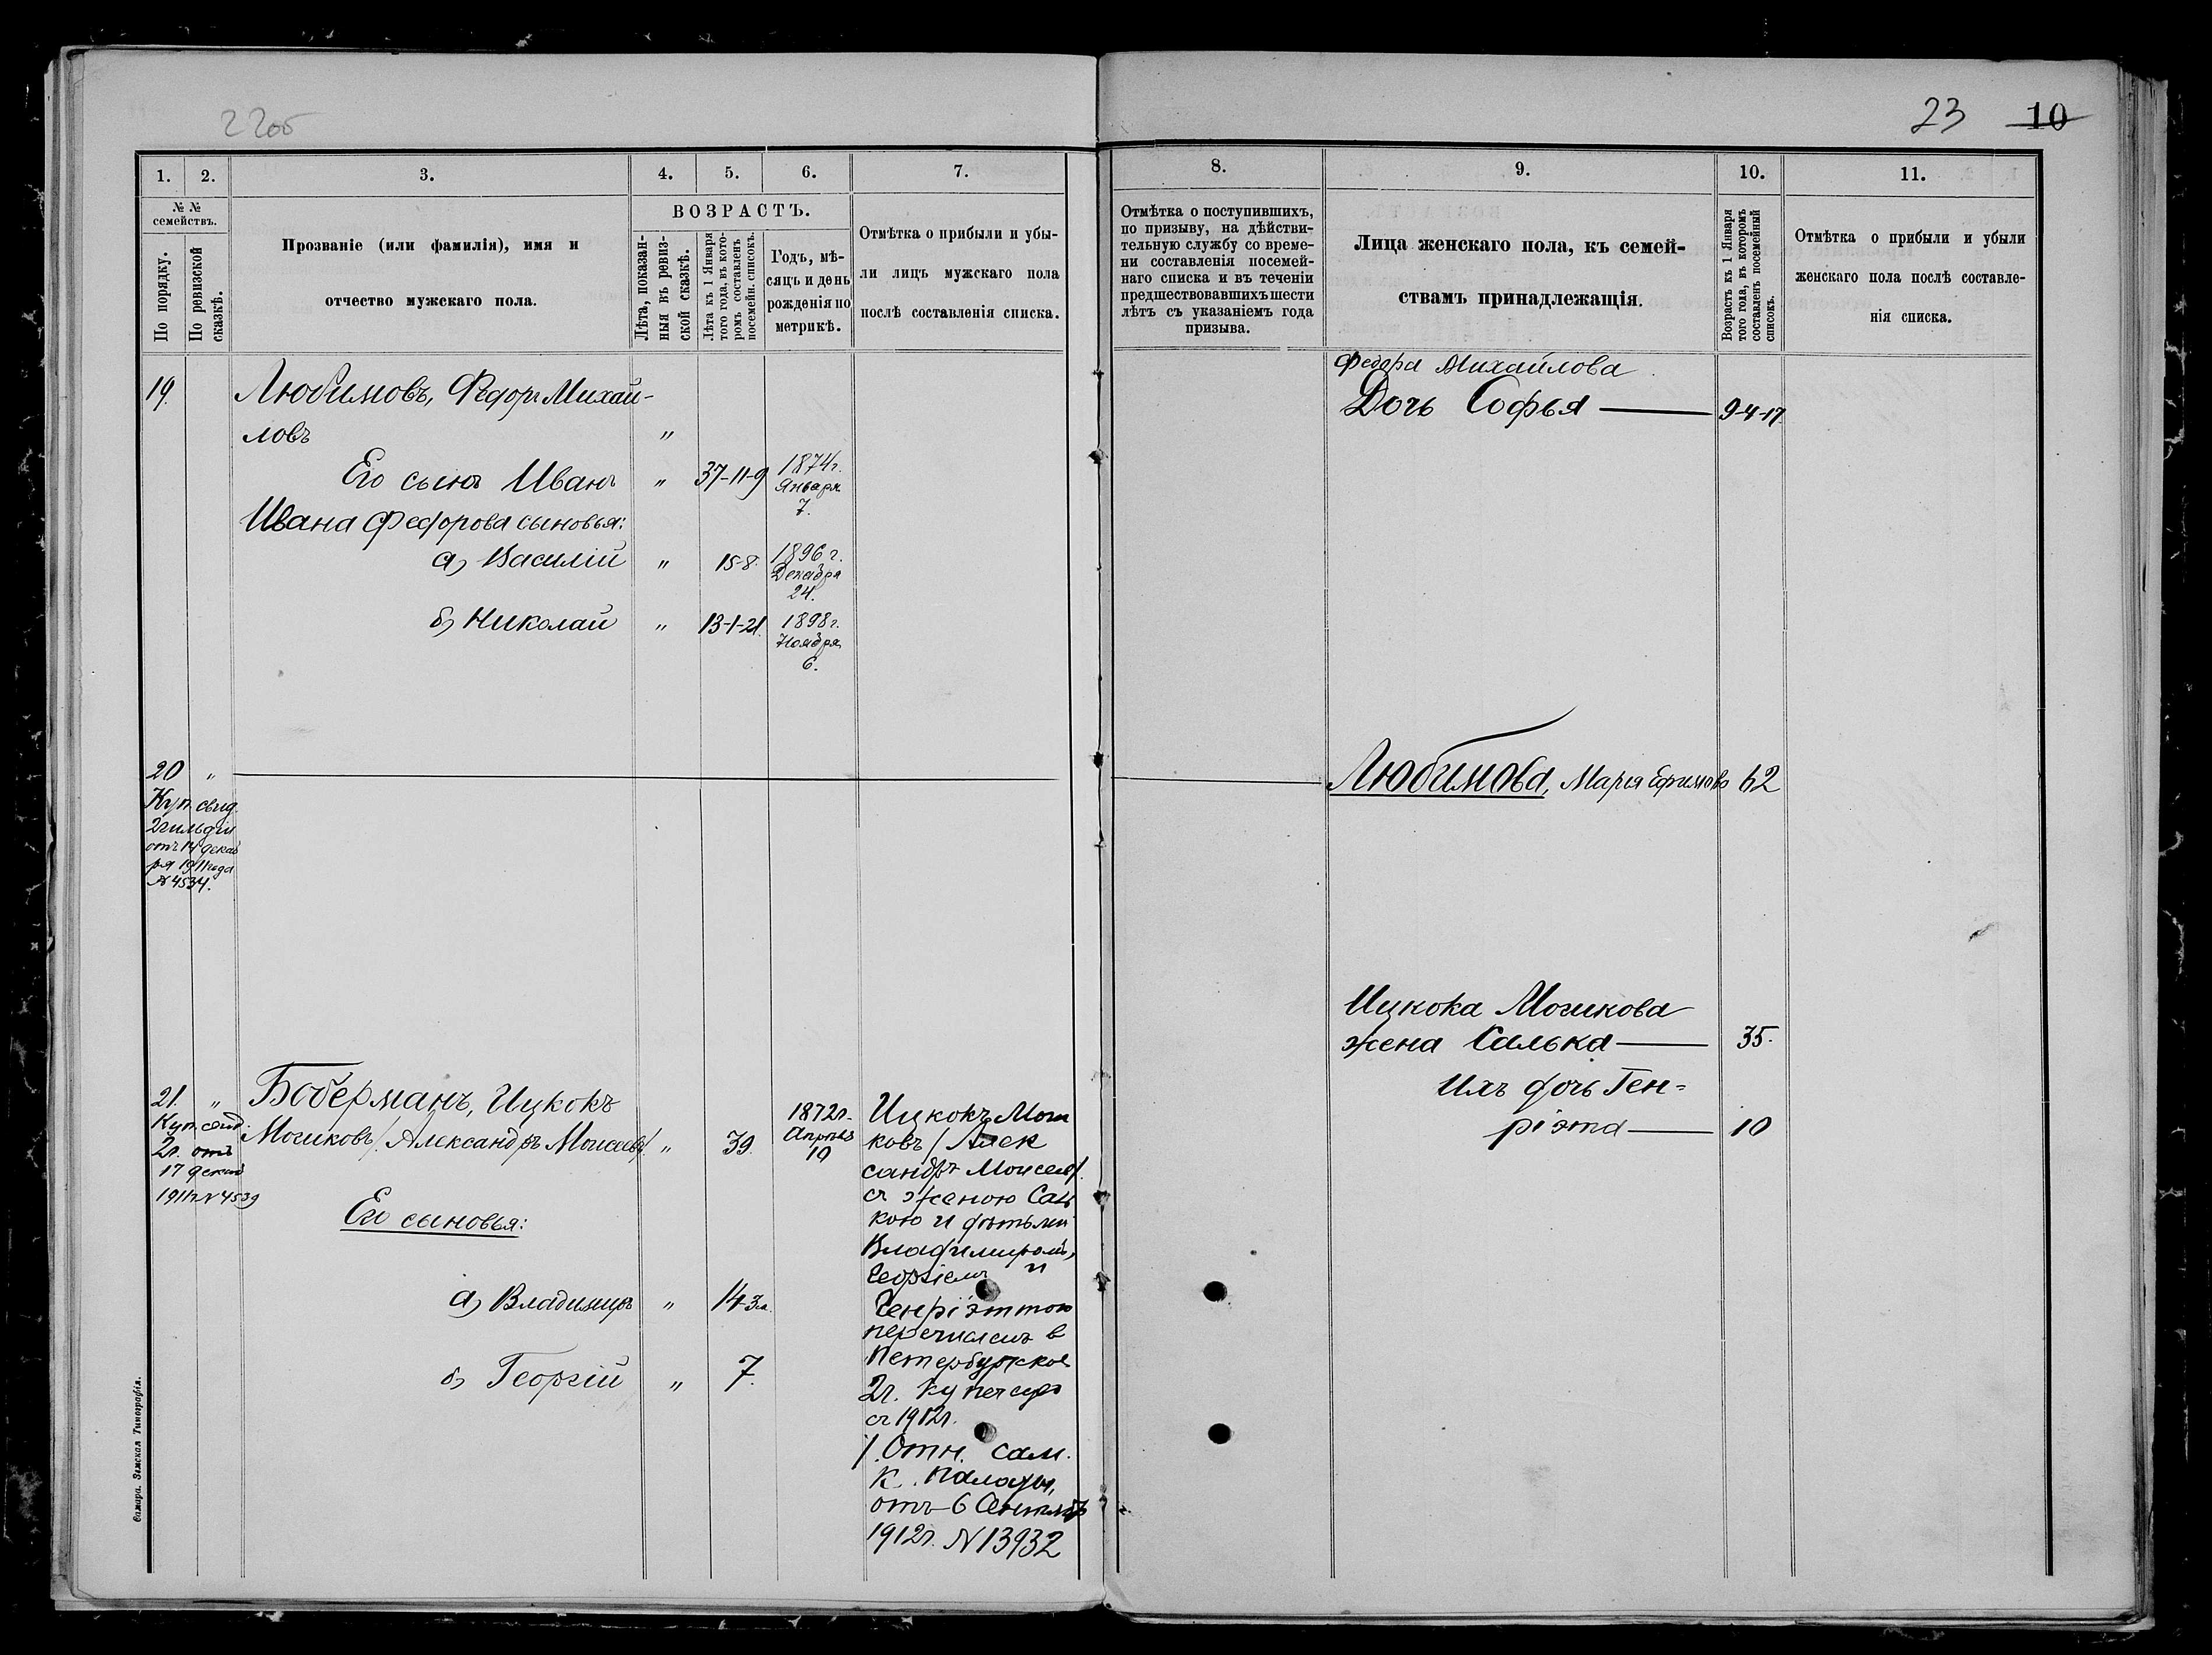 22 об
1.
2.
3.
4.
5.
6.
7.
№ №
семействъ.
По порядку.
По ревизской
сказкѣ.
Прозваніе (или фамилія), имя и
отчество мужскаго пола.
ВОЗРАСТЪ.
Лѣта, показан-
ныя въ ревиз-
ской сказкѣ.
Лѣта къ 1 Января
того года, въ кото-
ромъ составленъ
посемейн. списокъ.
Годъ, мѣ-
сяцъ и день
рожденія по
метрикѣ.
Отмѣтка о прибыли и убы-
ли лицъ мужскаго пола
послѣ составленія списка.
19.
Любимовъ, Федоръ Михай-
ловъ "
Его сынъ Иванъ " 37-11-9 1874 г.
Января
7.
Ивана Федорова сыновья:
а) Василій " 15-8. 1896 г.
Декабря
24.
б) Николай " 13-1-21. 1898 г.
Ноября
6.
20 "
Куп. свид.
2 гильдіи
отъ 14 декаб
ря 1911 года
№ 4534.
21. "
Куп. свид.
2 г. отъ
17 декаб
1911 г. № 4539
Боберманъ, Ицкокъ
Мошковъ /Александръ Моисеев/. " 39. 1872 г.
Апрѣля
10
Его сыновья:
а) Владиміръ " 14-3 м.
б) Георгій " 7.
Ицкокъ Мош
ковъ /Алек
сандръ Моисеев/.
съ женою Саль
кою и дѣтьми
Владиміромъ,
Георгіемъ и
Генріэттою
перечисленъ в
Петербургское
2 г. купечество
съ 1912 г.
/. Отн. Сам.
К. Палаты,
отъ 6 Сентября
1912 г. № 13932
Самара. Земская Типографія.
23 10
8.
9.
10.
11.
Отмѣтка о поступившихъ,
по призыву, на дѣйстви-
тельную службу со време-
ни составленія посемей-
наго списка и въ теченіи
предшествовавшихъ шести
лѣтъ съ указаніемъ года
призыва.
Лица женскаго пола, къ семей-
ствамъ принадлежащія.
Возрастъ къ 1 Января
того года, въ которомъ
составленъ посемейный
списокъ.
Отмѣтка о прибыли и убыли
женскаго пола послѣ составле-
нія списка.
Федора Михайлова
Дочь Софья 9-4-17.
Любимова, Марія Ефимова 62
Ицкока Мошкова
жена Салька 35.
Ихъ дочь Ген-
ріэта 10